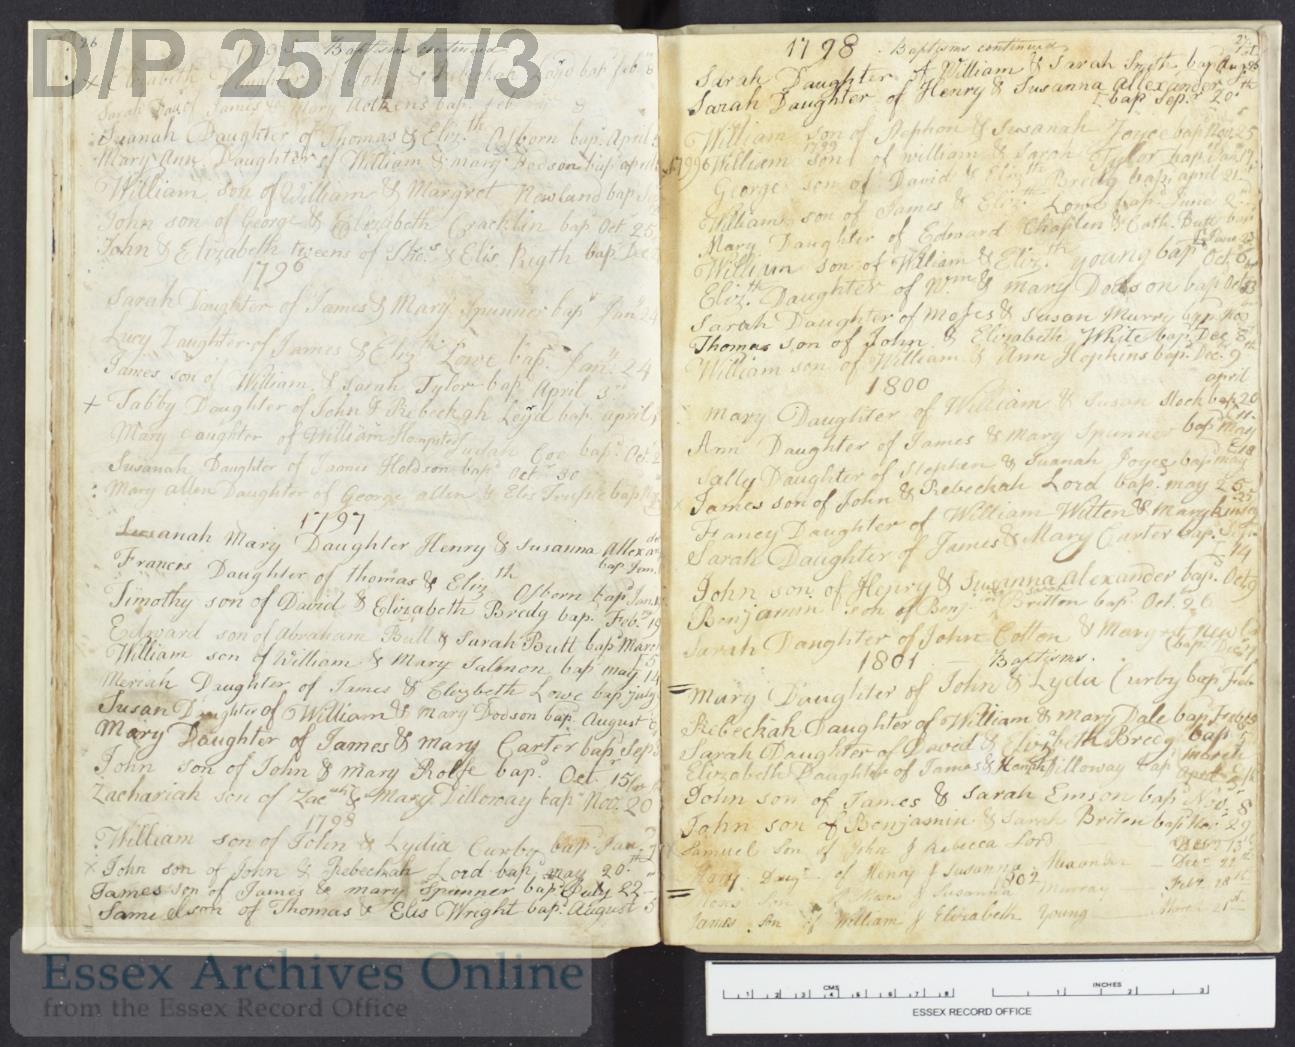 D/P 257/1/3
26
Baptisms continued
Elizabeth Daughter of John & Rebeckah Lord bap Feb
Sarah Daur of James & Mary Adkens bap. Feb
Susanah Daughter of Thomas & Eliz.th Osborn bap. April
Mary Ann Daughter of William & mary Dodson bap april
William son of William & Margret Newland bap
John son of George & Elizabeth Cracklin bap Oct 25
John & Elizabeth tweens of Tho.s & Elis Rigth bap. Dec
1796
Sarah Daughter of James & Mary Spunner bap Jan 24
Lucy Daughter of James & Eliz.th Lowe bap. Jan.y 24
James son of William & Sarah Tylor bap. April 3
+ Tabby Daughter of John & Rebeckah Loyd bap april
Mary Daughter of William Hempsted Judah Coe bap. Oct 2
Susanah Daughter of James Hodson bap Oct 30
Mary allen Daughter of George allen & Eles bap
1797
Susanah Mary Daughter Henry & Susanna Allexan
der
bap. Jan.
Frances Daughter of thomas & Eliz th Osborn bap. Jan.
Timothy son of David & Elizabeth Bredg bap. Feb.ry 19
Edward son of Abraham Butt & Sarah Butt bap March
William son of William & Mary Salmon bap may 14
Meriah Daughter of James & Elizbeth Lowe bap July
Susan Daughter of William & Mary Dodson bap. August 6
Mary Daughter of James & mary Carter bap. Sep
John son of John & Mary Rolfe bap.d Oct.r 15
Zachariah son of Zac & Mary Dilloway bap Nov. 20
1798
William son of John & Lydia Curby bap. Jan. 7
x John son of John & Rebeckah Lord bap. may 20.th
James son of James & mary Spunner bap. July 22
Sam son of Thomas & Elis Wright bap. August 5
1798 Baptisms continued
27
Sarah Daughter of William & Sarah Smith bap. Aug 26
Sarah Daughter of Henry & Susanna Allexander
bap Sep.r 20.th
William son of Stephen & Susanah Joyce bap Nov 25
1799
1799 William son of William & Sarah Tylor bap. Jan
George son of David & Eliz.th Bredg bap. april 21
William son of James & Eliz.th Lowe bap June 2
Mary Daughter of Edward Chaplen & Cath. Butt bap
June 23
William son of William & Eliz.th young bap Oct. 6
Eliz.th Daughter of W.m & mary Dodson bap Oct 13
Sarah Daughter of Moses & Susan Murry bap. Nov
Thomas son of John & Elizabeth White bap. Dec. 8
William son of William & Ann Hopkins bap. Dec. 9
1800
april
Mary Daughter of William & Susan Stock bap 20
Ann Daughter of James & Mary Spunner bap May
11
Sally Daughter of Stephen & Suanah Joyce bap may
18
James son of John & Rebeckah Lord bap. may 25
Francy Daughter of William Witten & Mary
Sarah Daughter of James & Mary Carter bap. Sep
14
John son of Henry & Susanna Alexander bap. Oct 9
Benjamin son of Benj.in & Sarah Britten bap. Oct. 26
Sarah Daughter of John Cotton & Margret New
bap. Dec.
1801 Baptisms.
Mary Daughter of John & Lyda Curby bap Feb
Rebeckah Daughter of William & Mary Dale bap Feb
Sarah Daughter of David & Elizbeth Bredg bap 5
march
Elizabeth Daughter of James & Dilloway bap
April
John son of James & Sarah Emson bap Nov. 8
John son of Benjamin & Sarah Briten bap Nov. 29
Samuel Son of John & Rebecca Lord
Mary Daugr of Henry & Susanna Alexander Dec
1802
Mons Son of Moses & Susanna Murray Feb. 28
James Son of William & Elizabeth Young March 21st
Essex Archives Online
from the Essex Record Office
CMS
1 2 3 4 5 6 7 8
INCHES
1 2 3
ESSEX RECORD OFFICE